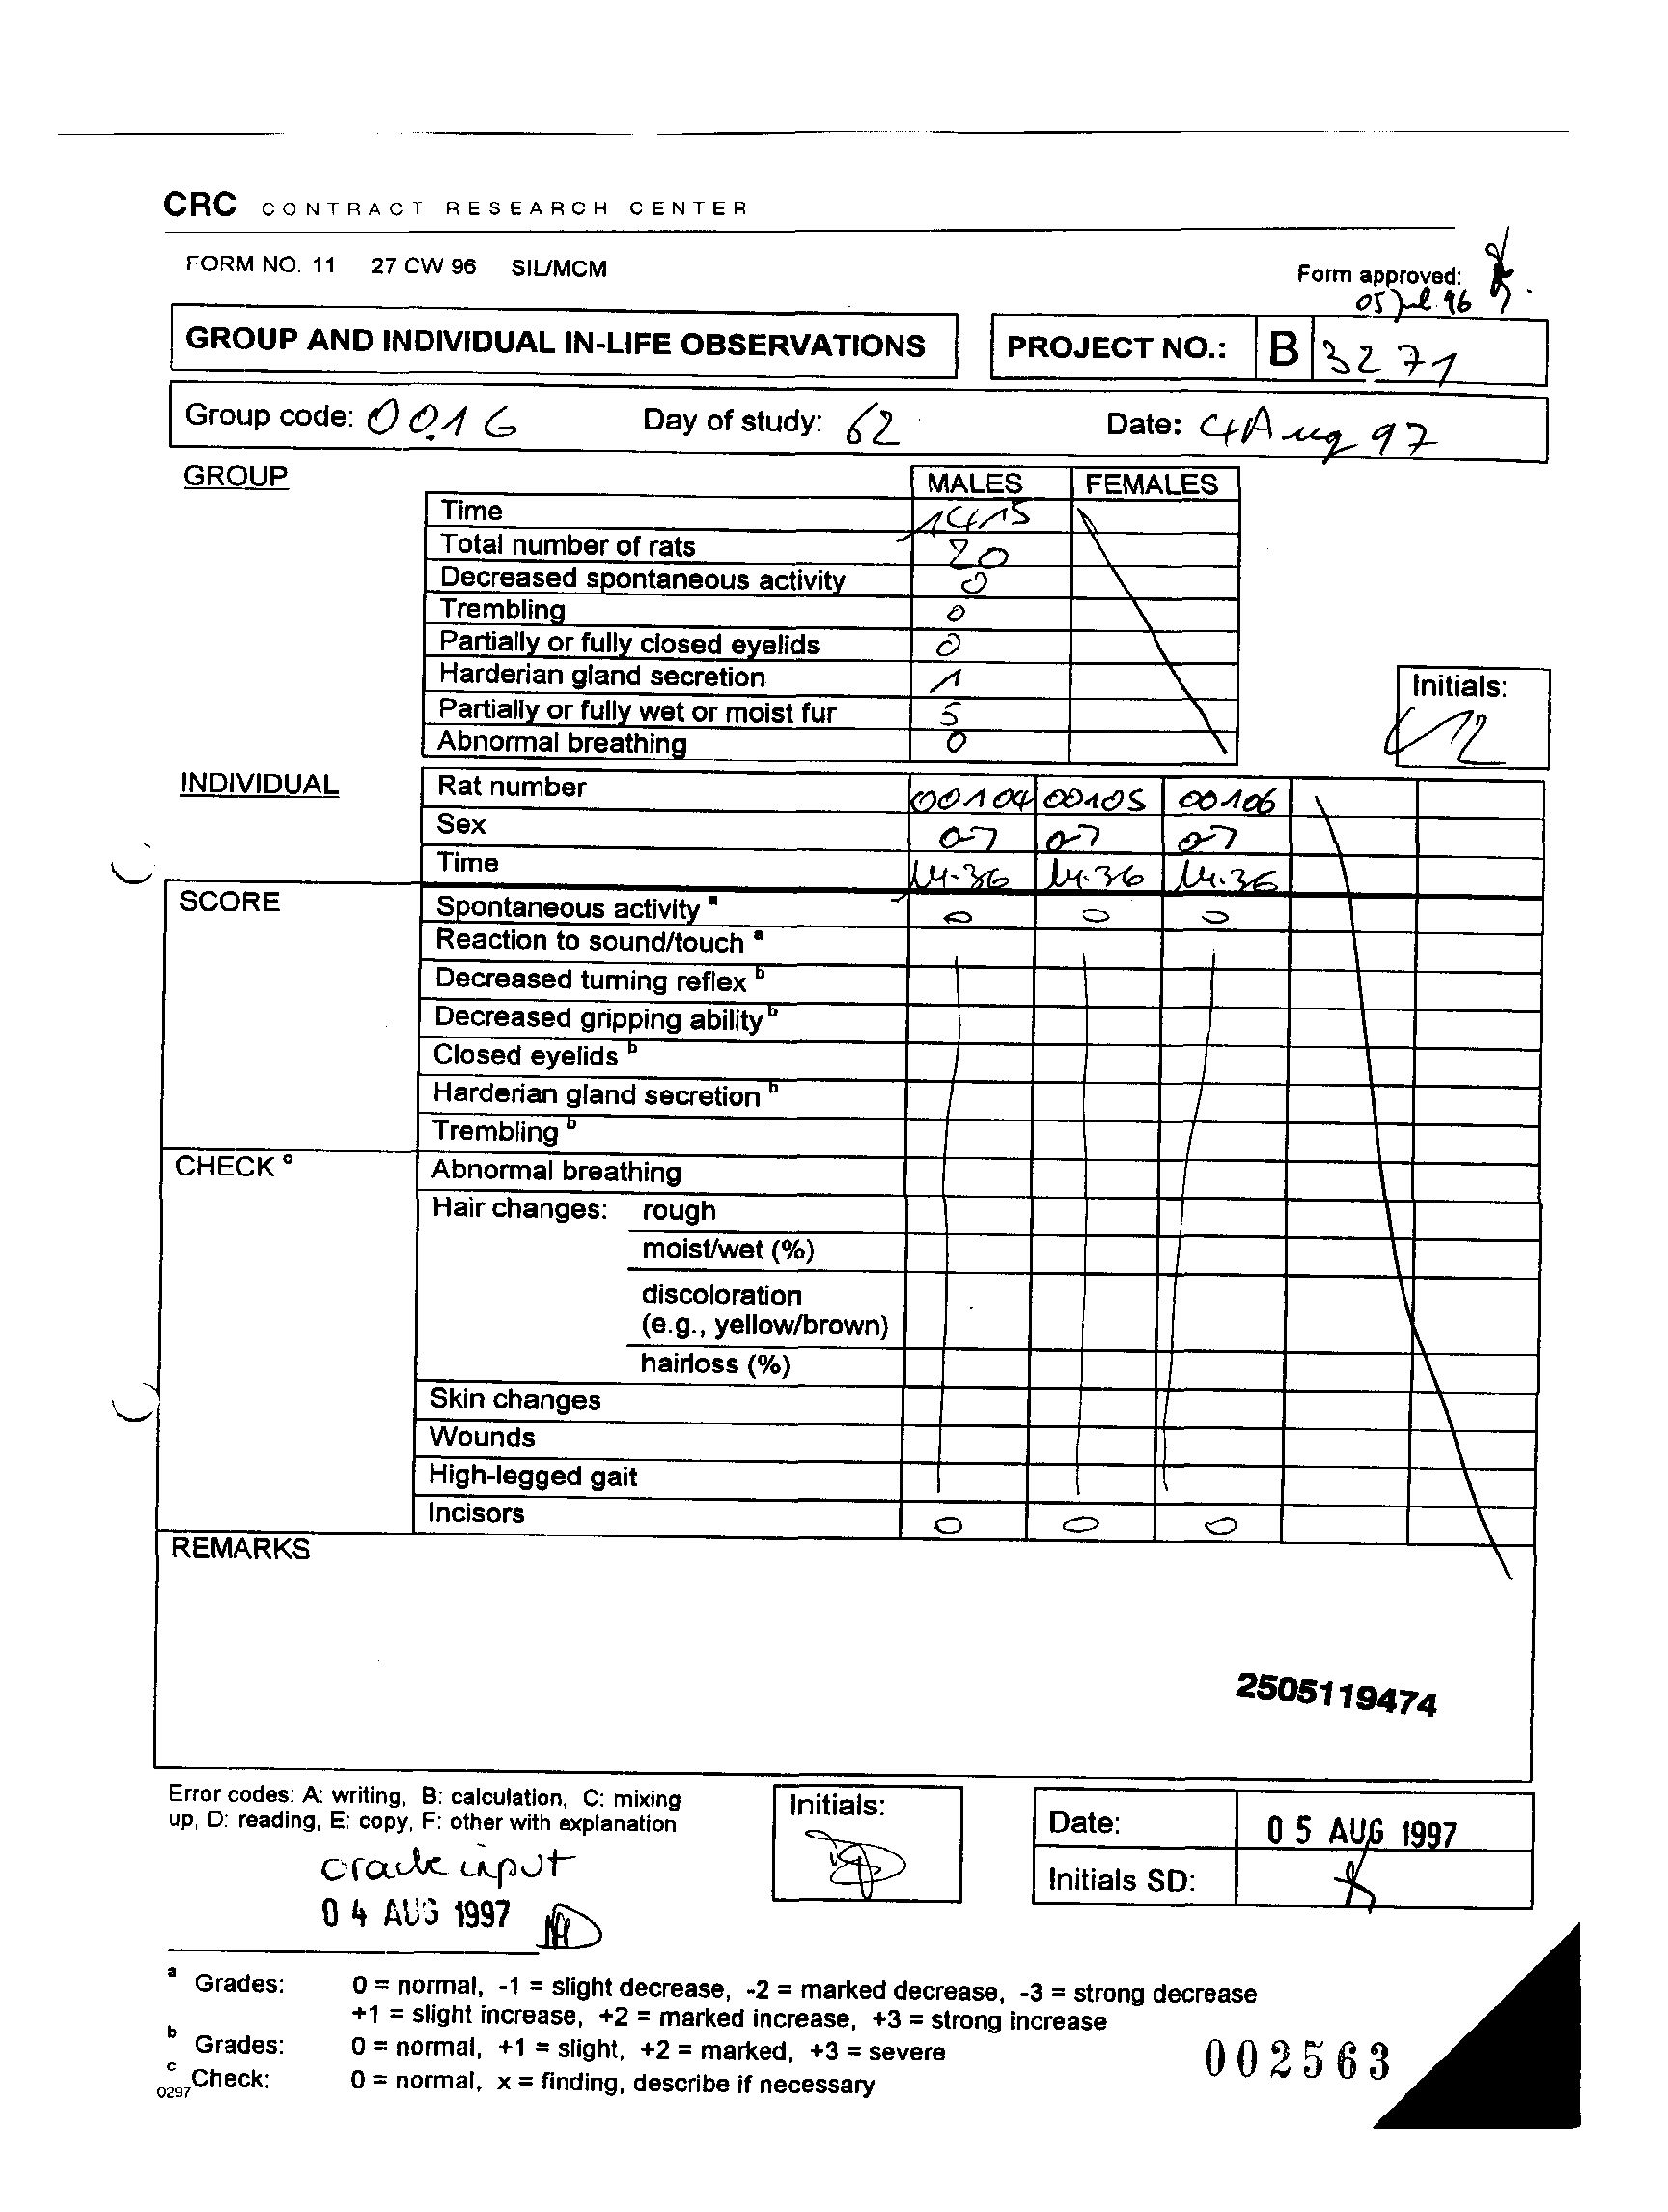 CRC CONTRACT RESEARCH CENTER
FORM NO. 11 27 CW 96 SIL/MCM
Form approved:
05 Jul. 96
GROUP AND INDIVIDUAL IN-LIFE OBSERVATIONS
PROJECT NO.: B 3271
Group code: 0016 Day of study: 62 Date: 4 Aug 97
GROUP MALES FEMALES
Time 1415
Total number of rats 20
Decreased spontaneous activity 0
Trembling 0
Partially or fully closed eyelids 0
Harderian gland secretion 1
Partially or fully wet or moist fur 5
Abnormal breathing 0
Initials:
INDIVIDUAL Rat number 00104 00105 00106
Sex
Time 14.36 14.36 14.36
SCORE Spontaneous activity a 0 0 0
Reaction to sound/touch a
Decreased turning reflex b
Decreased gripping ability b
Closed eyelids b
Harderian gland secretion b
Trembling b
CHECK c Abnormal breathing
Hair changes: rough
moist/wet (%)
discoloration
(e.g., yellow/brown)
hairloss (%)
Skin changes
Wounds
High-legged gait
Incisors 0 0 0
REMARKS
2505119474
Error codes: A: writing, B: calculation, C: mixing
up, D: reading, E: copy, F: other with explanation
Initials:
Date: 05 AUG 1997
Initials SD:
oracle input
04 AUG 1997
a Grades: 0 = normal, -1 = slight decrease, -2 = marked decrease, -3 = strong decrease
+1 = slight increase, +2 = marked increase, +3 = strong increase
b Grades: 0 = normal, +1 = slight, +2 = marked, +3 = severe
c Check: 0 = normal, x = finding, describe if necessary
0297
002563